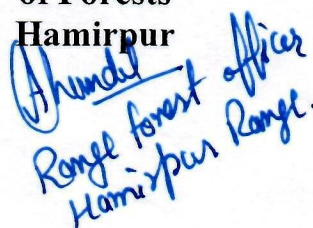 of Forests
Hamirpur
Range forest officer
Hamirpur Range.